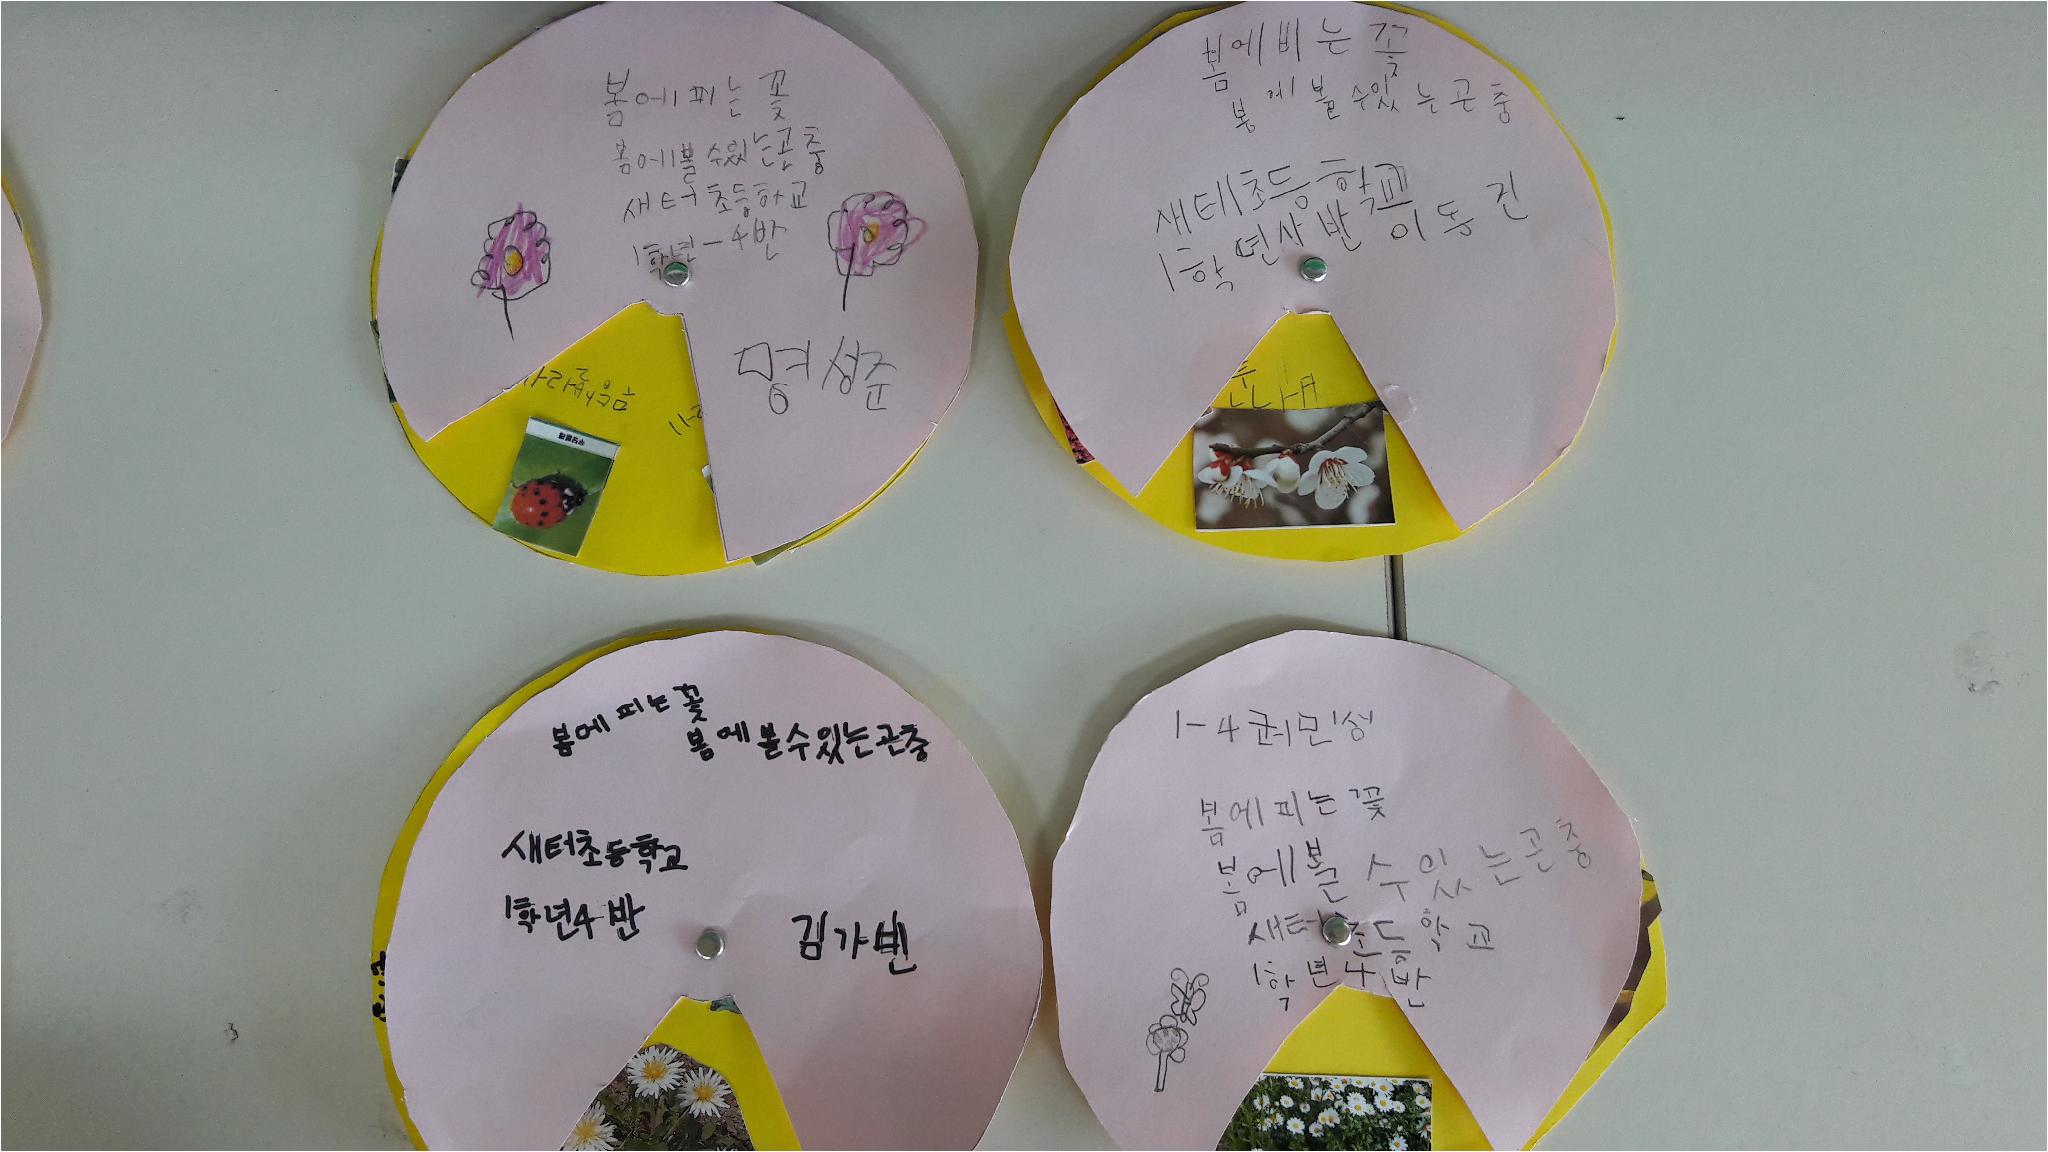 봄에피는 꽃
봄에볼 수있는곤충
새터 초등하교
1학년-4반
명성준
봄에비는 꽃
봉에볼수있는곤충
새터초등학교
1학년사반 이동건
봄에피는꽃
봄에볼수있는곤충
새터초등학교
1학년4반
김가빈
1-4 권민성
봄에피는꽃
봄에볼 수있는곤충
새터초등학교
1학년4반